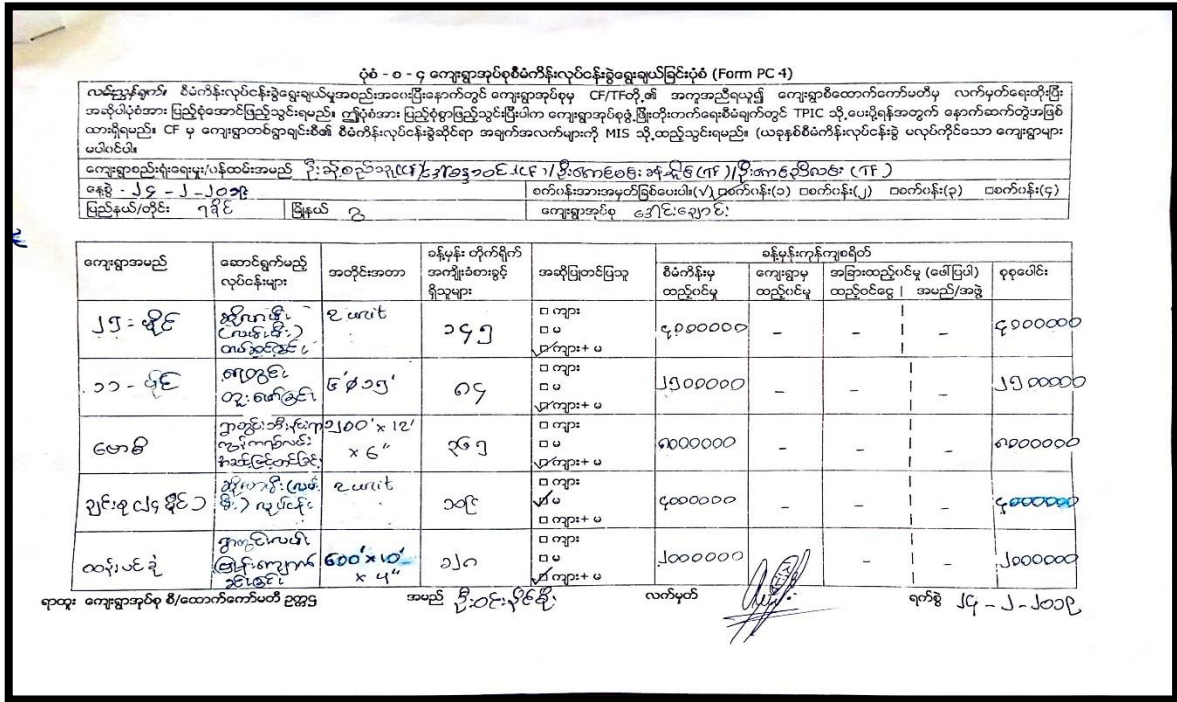 ပုံစံ - စ - ၄ ကျေးရွာအုပ်စုစီမံကိန်းလုပ်ငန်းခွဲရွေးချယ်ခြင်းပုံစံ (Form PC 4)
လမ်းညွှန်ချက်။ စီမံကိန်းလုပ်ငန်းခွဲရွေးချယ်မှုအစည်းအဝေးပြီးနောက်တွင် ကျေးရွာအုပ်စုမှ CF/TFတို့၏ အကူအညီရယူ၍ ကျေးရွာစီထောက်ကော်မတီမှ လက်မှတ်ရေးထိုးပြီး
အဆိုပါပုံစံအား ပြည့်စုံအောင်ဖြည့်သွင်းရမည်။ ဤပုံစံအား ပြည့်စုံစွာဖြည့်သွင်းပြီးပါက ကျေးရွာအုပ်စုဖွံ့ဖြိုးတိုးတက်ရေးစီမံချက်တွင် TPIC သို့ပေးပို့ရန်အတွက် နောက်ဆက်တွဲအဖြစ်
ထားရှိရမည်။ CF မှ ကျေးရွာတစ်ရွာချင်းစီ၏ စီမံကိန်းလုပ်ငန်းခွဲဆိုင်ရာ အချက်အလက်များကို MIS သို့ထည့်သွင်းရမည်။ (ယခုနှစ်စီမံကိန်းလုပ်ငန်းခွဲ မလုပ်ကိုင်သော ကျေးရွာများ
မပါဝင်ပါ။
ကျေးရွာစည်းရုံးရေးမှူး/ဝန်ထမ်းအမည်
နေ့စွဲ - ၂၄ - ၂ - ၂၀၁၉ စက်ဝန်းအားအမှတ်ခြစ်ပေးပါ။(√) □စက်ဝန်း(၁) □စက်ဝန်း(၂) □စက်ဝန်း(၃) □စက်ဝန်း(၄)
ပြည်နယ်/တိုင်း ရခိုင် မြို့နယ် ဂွ ကျေးရွာအုပ်စု ဒေါင်းချောင်း
ကျေးရွာအမည် ဆောင်ရွက်မည့် လုပ်ငန်းများ အတိုင်းအတာ ခန့်မှန်း တိုက်ရိုက် အကျိုးခံစားခွင့် ရှိသူများ အဆိုပြုတင်ပြသူ ခန့်မှန်းကုန်ကျစရိတ်
စီမံကိန်းမှ ထည့်ဝင်မှု ကျေးရွာမှ ထည့်ဝင်မှု အခြားထည့်ဝင်မှု (ဖော်ပြပါ) ထည့်ဝင်ငွေ အမည်/အဖွဲ့ စုစုပေါင်း
၂၅ - မိုင် ဆိုလာမီး (လမ်းမီး) တပ်ဆင်ခြင်း 2 unit ၁၄၅ □ ကျား □ မ ☑ ကျား+ မ ၄၀၀၀၀၀၀ - - - ၄၀၀၀၀၀၀
၁၁ - မိုင် ရေတွင်း တူးဖော်ခြင်း ၆'Ø ၁၅' ၈၄ □ ကျား □ မ ☑ ကျား+ မ ၂၅၀၀၀၀၀ - - - ၂၅၀၀၀၀၀
ဗောဓိ ၁၂၀၀' x 12' x 6" ၃၆၅ □ ကျား □ မ ☑ ကျား+ မ ၈၀၀၀၀၀၀ - - - ၈၀၀၀၀၀၀
ချင်းစု (၂၄ မိုင်) ဆိုလာမီး (လမ်းမီး) လုပ်ငန်း 2 unit ၁၀၉ □ ကျား ☑ မ □ ကျား+ မ ၄၀၀၀၀၀၀ - - - ၄၀၀၀၀၀၀
ထန်းပင်ခုံ ရွာတွင်းလမ်း ကျောက်ခင်းခြင်း 600' x 10' x 4" ၁၂၈ □ ကျား □ မ ☑ ကျား+ မ ၂၀၀၀၀၀၀ - - - ၂၀၀၀၀၀၀
ရာထူး ကျေးရွာအုပ်စု စီ/ထောက်ကော်မတီ ဥက္ကဋ္ဌ အမည် ဦးဝင်းနိုင်စိုး လက်မှတ် ရက်စွဲ ၂၄ - ၂ - ၂၀၁၉